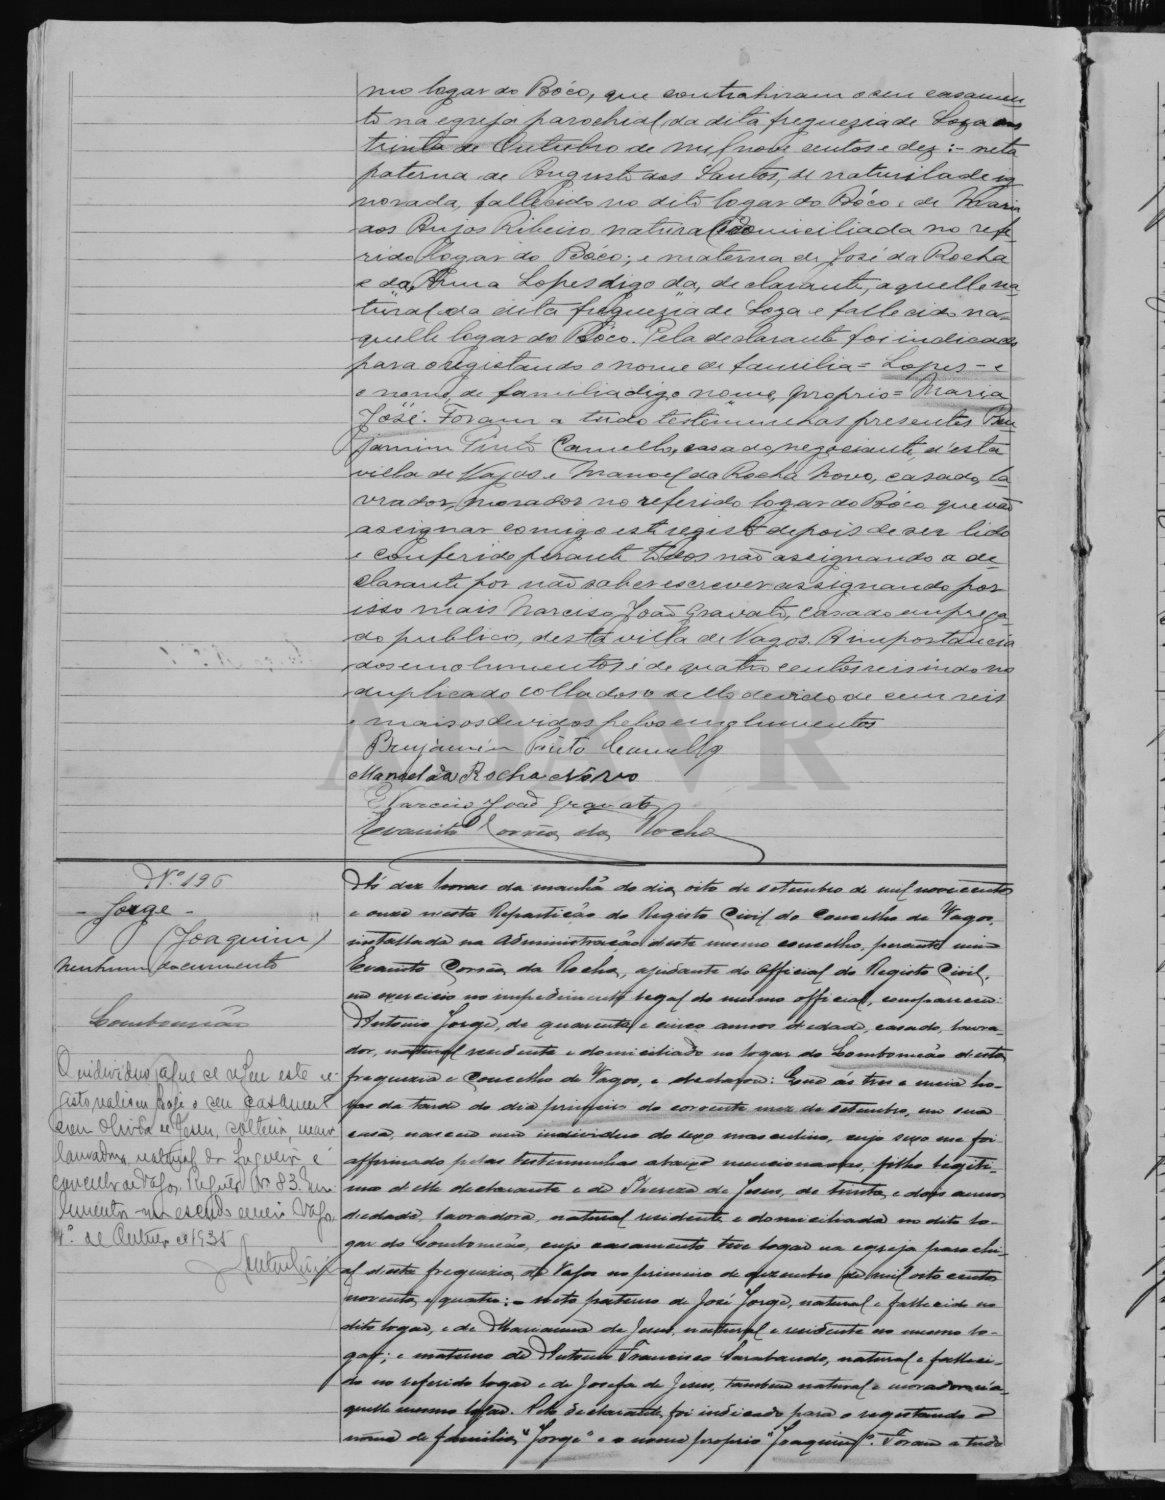 no logar do Bóco, que contrahiram o seu casamen
to na egreja parochial da dita freguezia de Soza aos
trinta de Outubro de mil nove centos e dez :- neta
paterna de Augusto dos Santos, de naturilade ig
norada, fallecido no dito logar do Bóco e de Maria
dos Anjos Ribeiro natural e domiciliada no refe
rido logar do Bóco; e materna de José da Rocha
e da Anna Lopes digo da, declarante, aquelle na
tural da dita freguezia de Soza e fallecido na-
quelle logar do Bóco. Pela declarante foi indicado
para o registando o nome de familia = Lopes - e
o nome de familia digo nome proprio = Maria
José. Foram a tudo testemunhas presentes Ben
jamim Pinto Camello, casado, negociante, d'esta
villa de Vagos e Manoel da Rocha Novo, casado, la
vrador, morador no referido logar do Bóco que vão
assignar comigo este registo depois de ser lido
e conferido perante todos não assignando a de-
clarante por não saber escrever assignando por
isso mais Narciso João Gravato, casado emprega-
do publico, desta villa de Vagos. A importancia
dos emolumentos é de quatro centos reis indo no
duplicado collados o sello devido de cem reis
e mais os devidos pelos emolumentos
Benjamim Pinto Camello
Manoel da Rocha Novo
Narciso João Gravato
Evaristo Corrêa da Rocha
Nº 196
- Jorge -
(Joaquim)
Nenhum documento
Combomião
O individuo a que se refere este re-
gisto realisou hoje o seu casament
com Olivia de Jesus, solteira, maior
lavradora, natural da freguesia e
concelho de Vagos. Registo Nº 83.
Vagos
4 de Outubro de 1935
Ás dez horas da manhã do dia oito de setembro de mil novecentos
e onze nesta Repartição do Registo Civil do Concelho de Vagos,
installada na Administração deste mesmo concelho, perante mim
Evaristo Corrêa da Rocha, ajudante do Official do Registo Civil,
em exercicio no impedimento legal do mesmo official, compareceu:
Antonio Jorge, de quarenta e cinco annos de edade, casado, lavra-
dor, natural residente e domiciliado no logar do Combomião desta
freguezia e Concelho de Vagos, e declarou: Que ás tres e meia ho-
ras da tarde do dia primeiro do corrente mez de setembro, em sua
casa, nasceu um individuo do sexo masculino, cujo sexo me foi
affirmado pelas testemunhas abaixo mencionadas, filho legiti-
mo d'elle declarante e de Thereza de Jesus, de trinta e dois annos
de edade, lavradora, natural residente e domiciliada no dito lo-
gar do Combomião, cujo casamento teve logar na egreja parochi-
al desta freguezia de Vagos no primeiro de dezembro de mil oito centos
noventa e quatro; - neto paterno de José Jorge, natural e fallecido no
dito logar, e de Marianna de Jesus, natural e residente no mesmo lo-
gar; e materno de Antonio Francisco Sarabando, natural e falleci-
do no referido logar e de Josefa de Jesus, tambem natural e moradora n'a-
quelle mesmo logar. Pelo declarante foi indicado para o registando o
nome de familia "Jorge" e o nome proprio "Joaquim". Foram a tudo
ADAVR